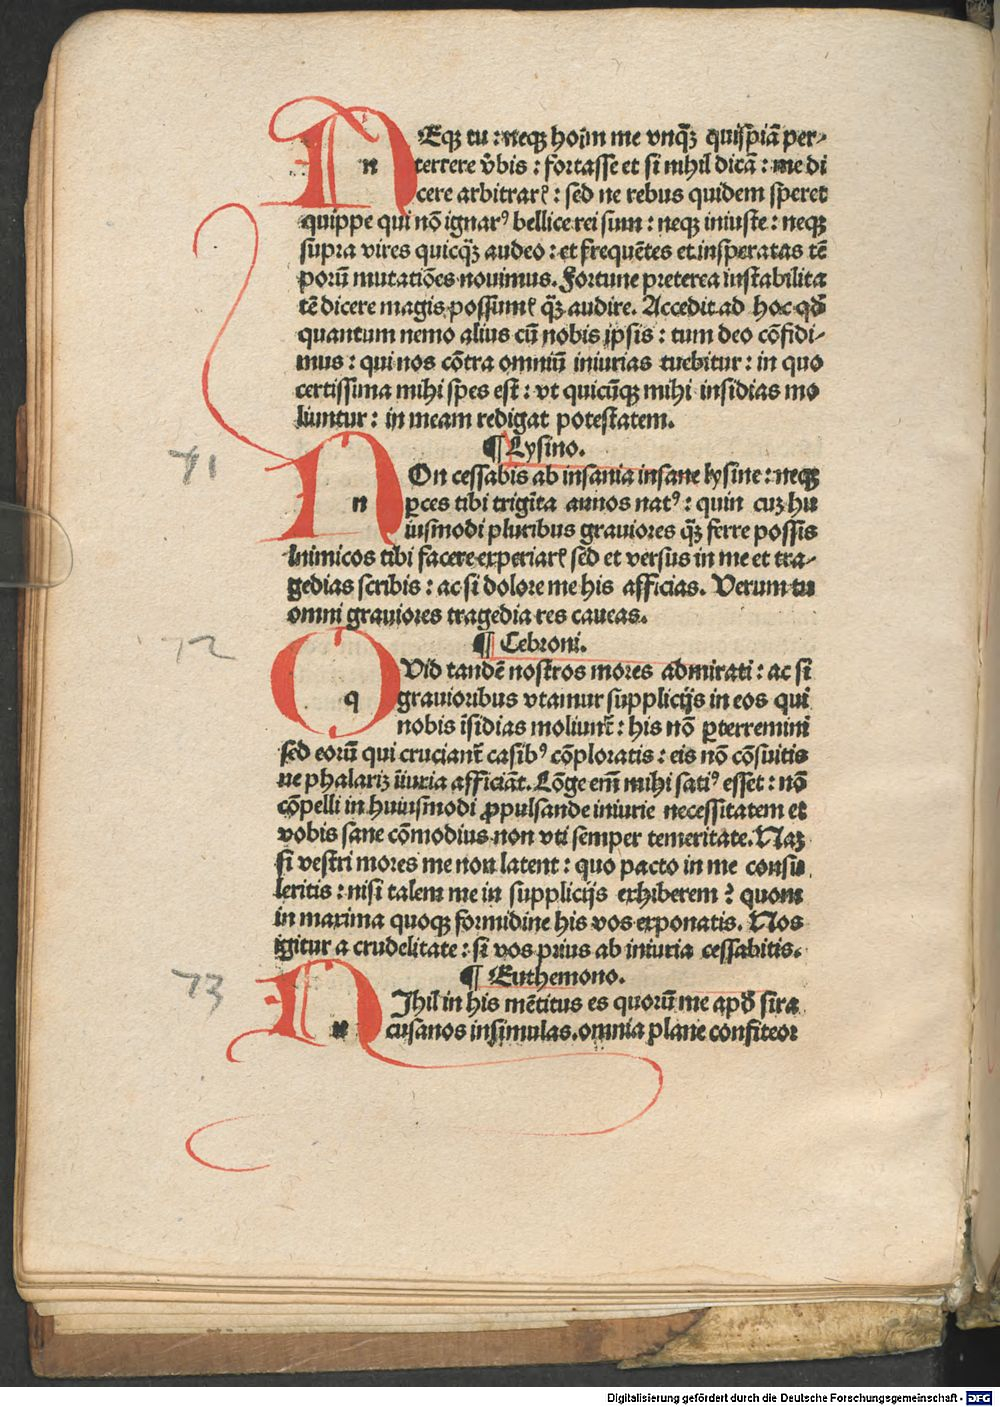 NEqꝫ tu : neqꝫ hoīm me vnqꝫ̄ quispiā per⸗
terrere v̄bis : fortasse et si nihil dicā : me di
cere arbitrarꝭ : sed ne rebus quidem speret
quippe qui nō ignarꝰ bellice rei sum : neqꝫ iniuste : neqꝫ
supra vires quicqꝫ̄ audeo : et frequētes et insperatas tē
porū mutatiōes nouimus. Fortune preterea instabilita
tē dicere magis possumꝰ qꝫ̄ audire. Accedit ad hoc qd̄
quantum nemo alius cū nobis ipsis : tum deo cōfidi⸗
mus : qui nos cōtra omniū iniurias tuebitur : in quo
certissima mihi spes est : vt quicūqꝫ mihi insidias mo
liuntur : in meam redigat potestatem.
¶ Lysino.
71
NOn cessabis ab insania insane lysine : neqꝫ
ꝑces tibi trigīta annos natꝰ : quin cuꝫ hu
iusmodi pluribus grauiores qꝫ̄ ferre possis
Inimicos tibi facere experiarꝭ sed et versus in me et tra⸗
gedias scribis : ac si dolore me his afficias. Verum tu
omni grauiores tragedia res caueas.
72
¶ Cebroni.
QVid tandē nostros mores admirati : ac si
grauioribus vtamur supplicijs in eos qui
nobis īsidias moliunt̄ : his nō ꝑterremini
sed eorū qui cruciant̄ casibꝰ cōploratis : eis nō cōsuitis
ne phalariꝫ iīuria afficiāt. Lōge em̄ mihi satiꝰ esset : nō
cōpelli in huiusmodi ꝓpulsande iniurie necessitatem et
vobis sane cōmodius non vti semper temeritate. Naꝫ
si vestri mores me non latent : quo pacto in me consu
leritis : nisi talem me in supplicijs exhiberem ? quom
in maxima quoqꝫ formidine his vos exponatis. Nos
igitur a crudelitate : si vos prius ab iniuria cessabitis.
73
¶ Euthemono.
NIhil in his mētitus es quorū me apd̄ sira
cusanos insimulas. omnia plane confiteor
Digitalisierung gefördert durch die Deutsche Forschungsgemeinschaft - DFG